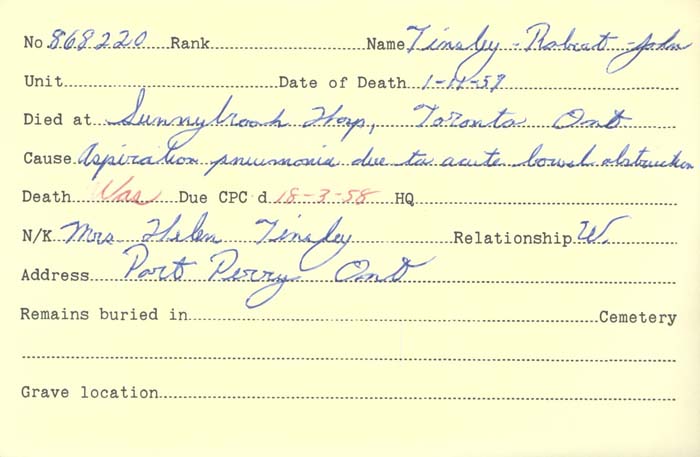 No. 868220 Rank Name Tinsley - Robert - John
Unit Date of Death 1-11-57
Died at Sunnybrook Hosp, Toronto Ont
Cause Aspiration pneumonia due to acute bowel obstruction
Death Was Due CPC d 18-3-58 HQ
N/K Mrs Helen Tinsley Relationship W.
Address Port Perry Ont
Remains buried in Cemetery
Grave location